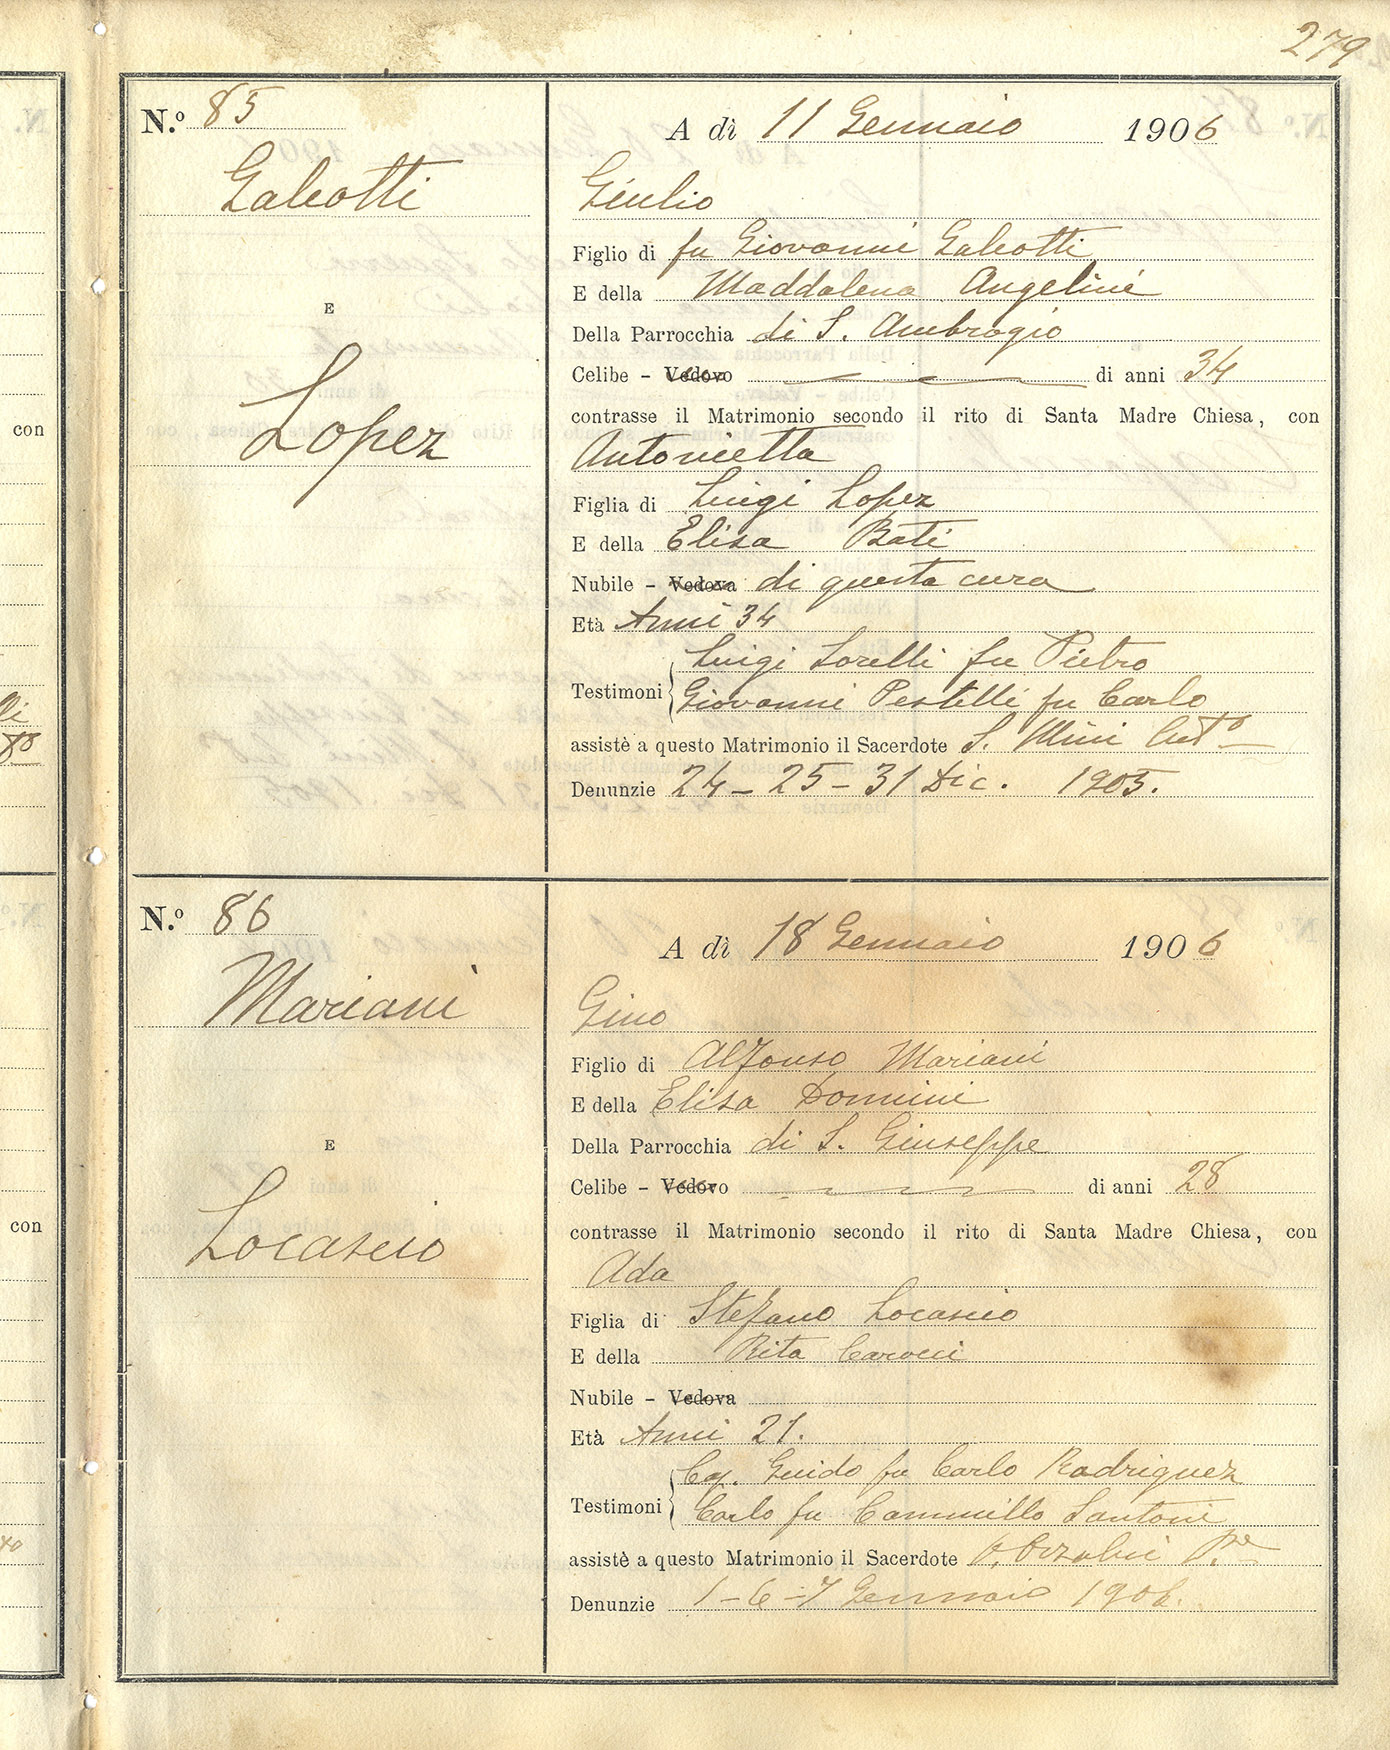 279
N.º 85
Galeotti
E
Lopez
A dì 11 Gennaio 1906
Giulio
Figlio di fu Giovanni Galeotti
E della Maddalena Angelini
Della Parrocchia di S. Ambrogio
Celibe - Vedovo di anni 34
contrasse il Matrimonio secondo il rito di Santa Madre Chiesa, con
Antonietta
Figlia di Luigi Lopez
E della Elisa Bati
Nubile - Vedova di questa cura
Età Anni 34
Luigi Sorelli fu Pietro
Testimoni Giovanni Pestelli fu Carlo
assistè a questo Matrimonio il Sacerdote S. Mini
Denunzie 24 - 25 - 31 Dic. 1905.
N.º 86
Mariani
E
Locascio
A dì 18 Gennaio 1906
Gino
Figlio di Alfonso Mariani
E della Elisa Donnini
Della Parrocchia di S. Giuseppe
Celibe - Vedovo di anni 28
contrasse il Matrimonio secondo il rito di Santa Madre Chiesa, con
Ada
Figlia di Stefano Locascio
E della Rita Carocci
Nubile - Vedova
Età Anni 21.
Guido fu Carlo Rodriguez
Testimoni Carlo fu Cammillo Santoni
assistè a questo Matrimonio il Sacerdote
Denunzie 1 - 6 - 7 Gennaio 1906.
con
con